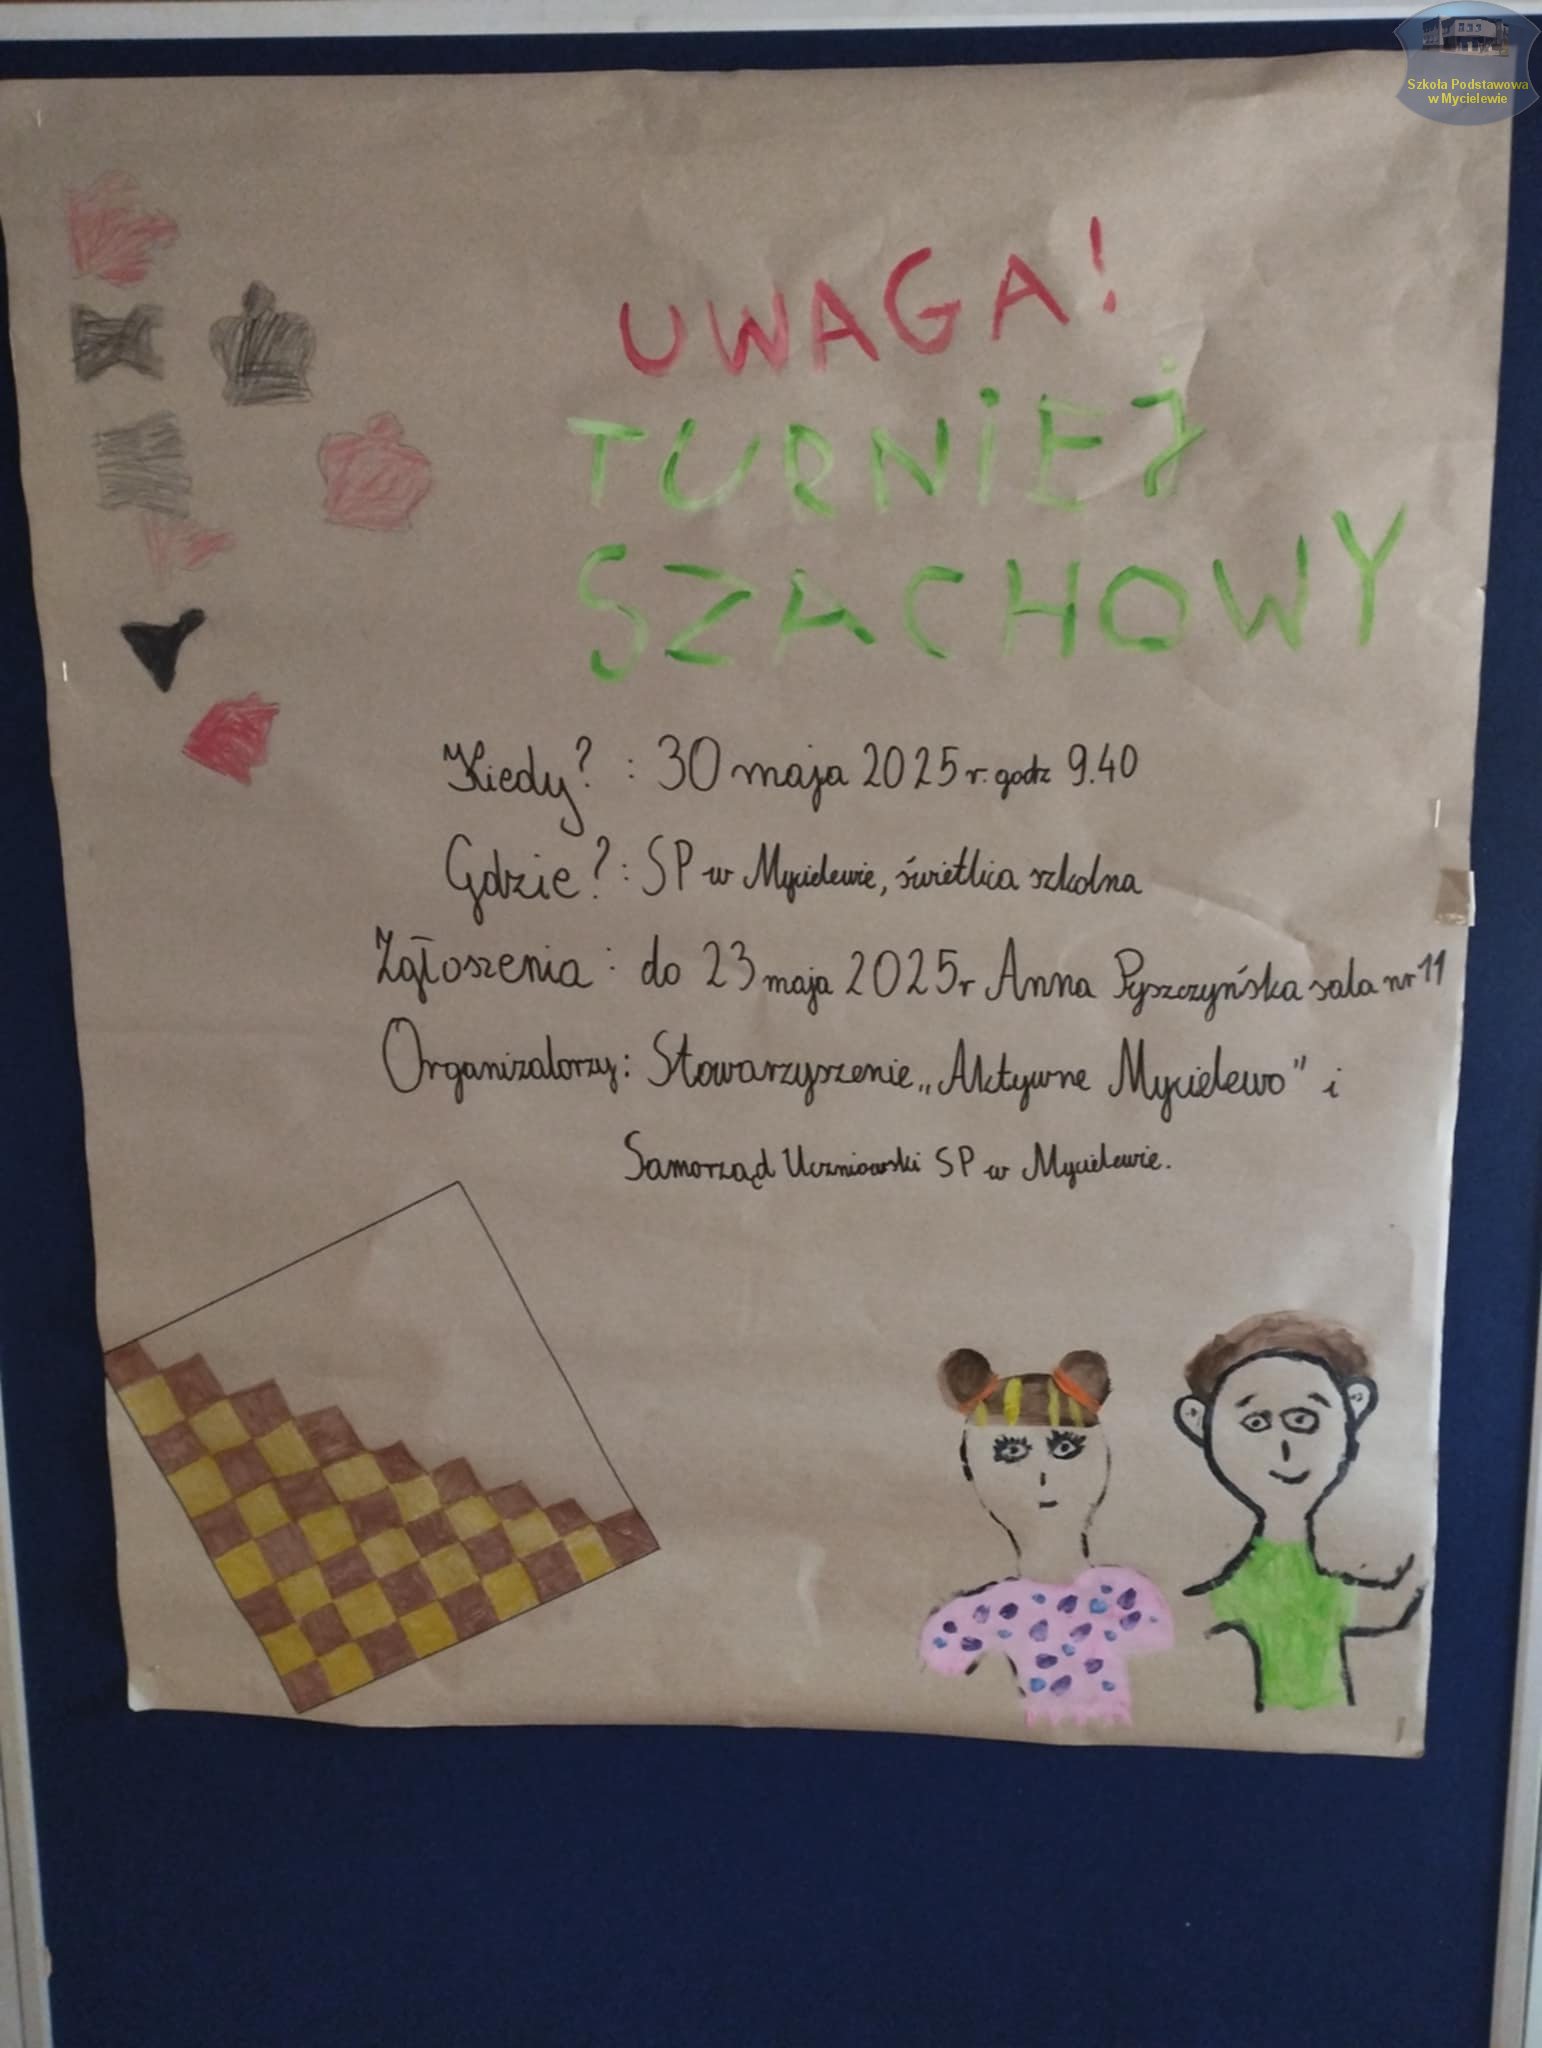 Szkoła Podstawowa
w Mycielewie
UWAGA!
TURNIEJ
SZACHOWY
Kiedy? : 30 maja 2025 r. godz 9.40
Gdzie? : SP w Mycielewie, świetlica szkolna
Zgłoszenia : do 23 maja 2025r Anna Pyszczyńska sala nr 11
Organizatorzy: Stowarzyszenie „Aktywne Mycielewo" i
Samorząd Uczniowski SP w Mycielewie.